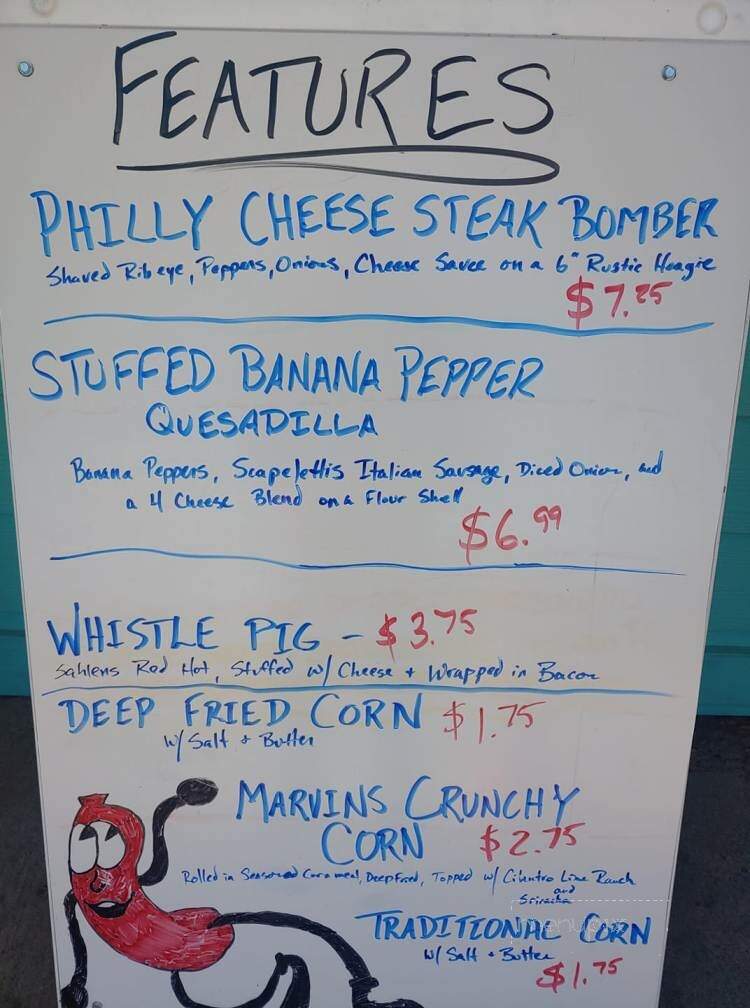 FEATURES
PHILLY CHEESE STEAK BOMBER
Shaved Ribeye, Peppers, Onions, Cheese Sauce on a 6" Rustic Hoagie
$7.25
STUFFED BANANA PEPPER
QUESADILLA
Banana Peppers, Scapelettis Italian Sausage, Diced Onion, and
a 4 Cheese Blend on a Flour Shell
$6.99
WHISTLE PIG - $3.75
Sahlens Red Hot, Stuffed w/ Cheese + Wrapped in Bacon
DEEP FRIED CORN $1.75
w/ Salt + Butter
MARVINS CRUNCHY
CORN $2.75
Rolled in Seasoned Cornmeal, Deep Fried, Topped w/ Cilantro Lime Ranch
and
Sriracha
TRADITIONAL CORN
w/ Salt + Butter
$1.75